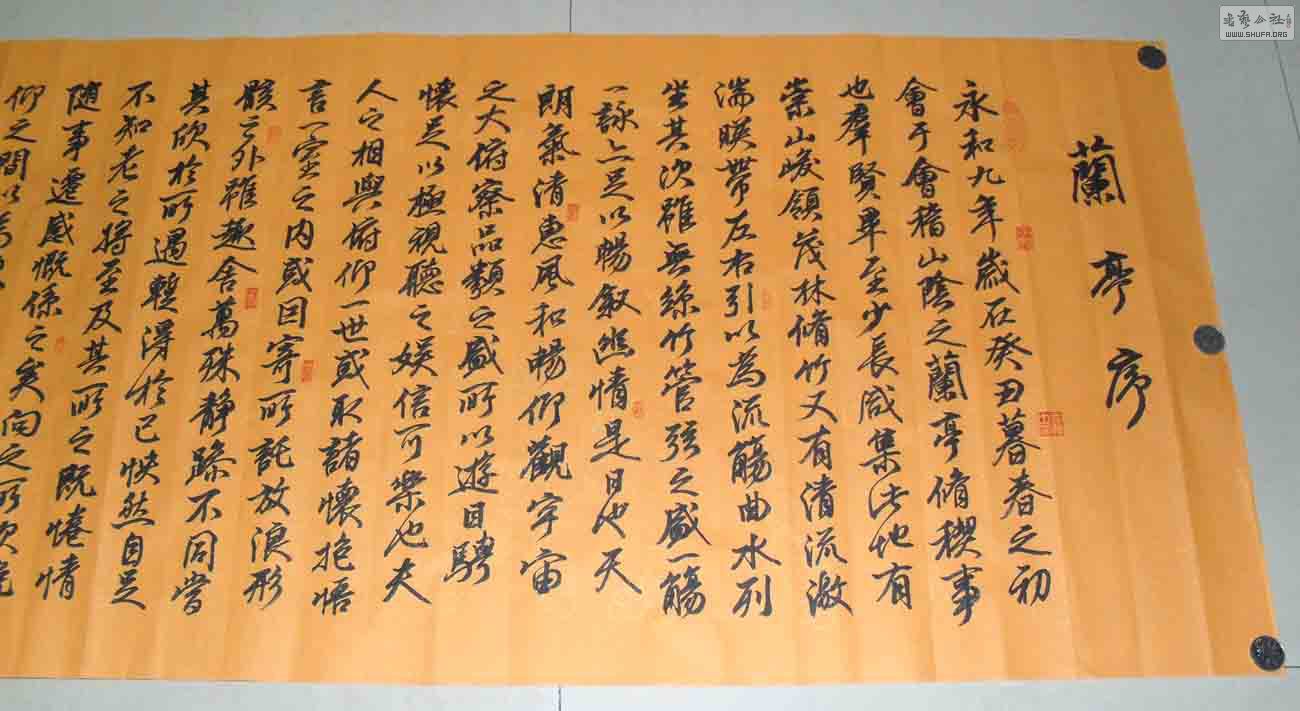 蘭亭序
永和九年歲在癸丑暮春之初
會于會稽山陰之蘭亭脩稧事
也羣賢畢至少長咸集此地有
崇山峻領茂林脩竹又有清流激
湍暎帶左右引以為流觴曲水列
坐其次雖無絲竹管弦之盛一觴
一詠亦足以暢敘幽情是日也天
朗氣清惠風和暢仰觀宇宙
之大俯察品類之盛所以遊目騁
懷足以極視聽之娛信可樂也夫
人之相與俯仰一世或取諸懷抱悟
言一室之內或因寄所託放浪形
骸之外雖趣舍萬殊靜躁不同當
其欣於所遇暫得於己怏然自足
不知老之將至及其所之既惓情
隨事遷感慨係之矣向之所欣俛
仰之間以為
書藝公社
WWW.SHUFA.ORG